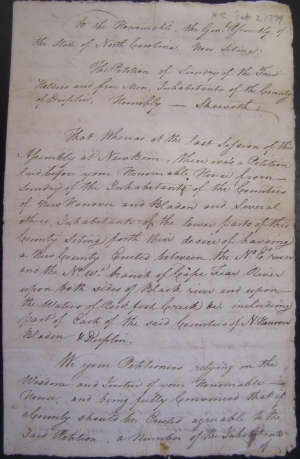 N.C. Feb 2, 1779
To the Honourable, the Genl. Assembly of
the State of North Carolina Now Siting.
The Petition of Sundry of the Free
Holders and free Men, Inhabitants of the County
of Duplin. Humbly — Sheweth —
That Whereas at the last Session of the
Assembly at Newbern, there was a Petition
laid before your Honourable House from —
Sundry of the Inhabitants of the Counties
of New Hanover and Bladen and Several
other Inhabitants of the lower parts of this
County Siting forth their desire of having
a New County Erected between the No. Et. river
and the No. Wt. branch of Cape Fear River
upon both sides of Black river and upon —
the Waters of Rockfish Creek &c including
part of Each of the said Counties of N. Hanover
Bladen & Duplin.
We your Petitioners relying in the
Wisdom and Justice of your Honourable —
House, and being fully Convinced that if
a County should be Erected agreable to the
Said Petition a Number of the Inhabitants
of